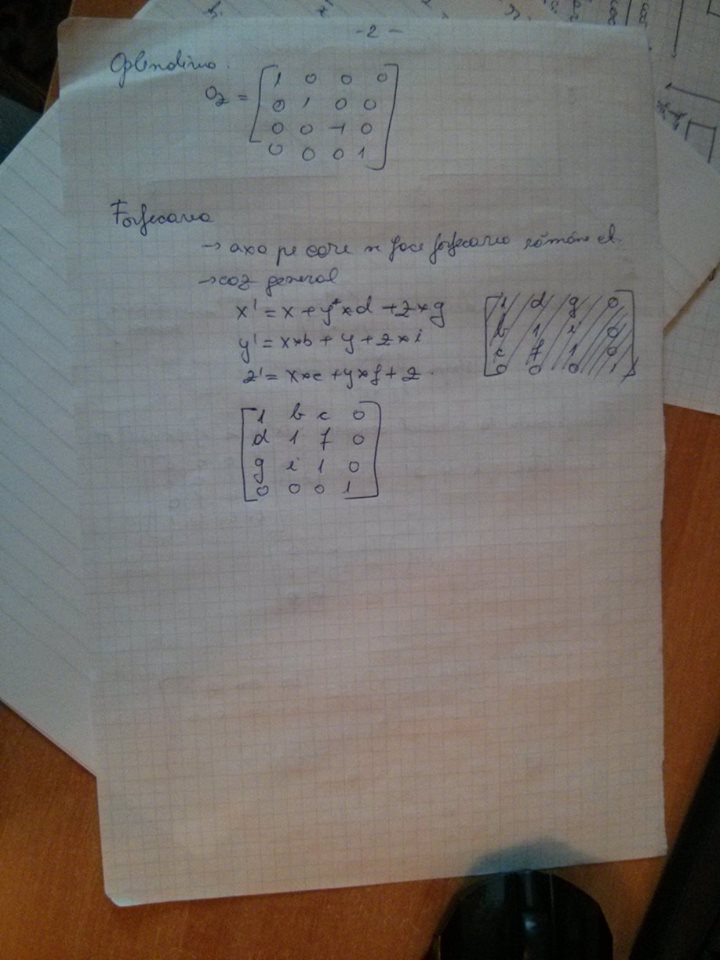 - 2 -
Oglindirea.
Oz = [1 0 0 0
0 1 0 0
0 0 -1 0
0 0 0 1]
Forfecarea
→ axa pe care se face forfecarea rămâne ct.
→ caz general
x' = x + y * d + z * g
y' = x * b + y + z * i
z' = x * c + y * f + z.
[1 d g 0
b 1 i 0
c f 1 0
0 0 0 1]
[1 b c 0
d 1 f 0
g i 1 0
0 0 0 1]